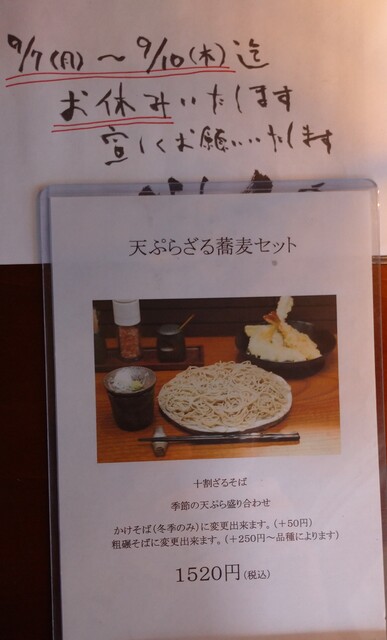 9/7(月)～9/10(木)迄
お休みいたします
宜しくお願いいたします
天ぷらざる蕎麦セット
十割ざるそば
季節の天ぷら盛り合わせ
かけそば(冬季のみ)に変更出来ます。(＋50円)
粗碾そばに変更出来ます。(＋250円～品種によります)
1520円(税込)